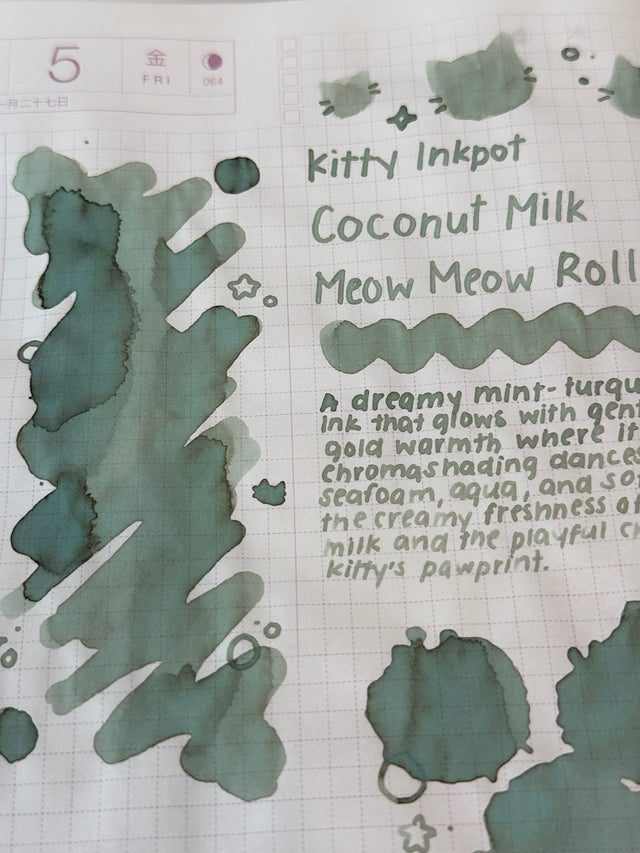 5
金
FRI
064
一月二十七日
Kitty Inkpot
Coconut Milk
Meow Meow Roll
A dreamy mint-turqu
ink that glows with gen
gold warmth where it
chromashading dances
seafoam, aqua, and so
the creamy freshness o
milk and the playful c
kitty's pawprint.